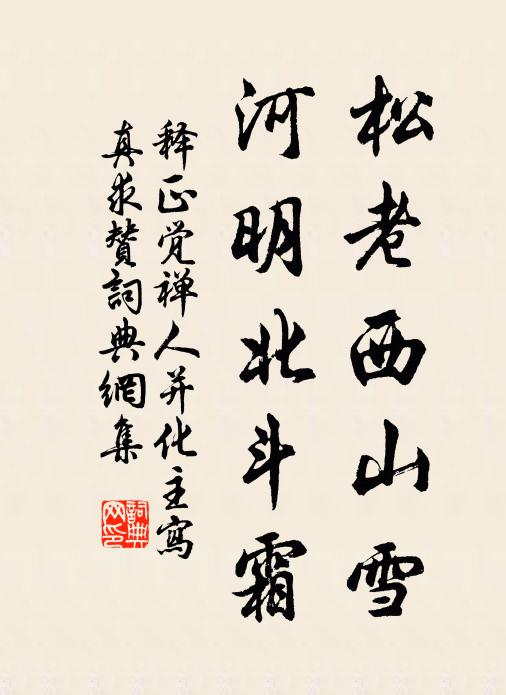 松老西山雪
河明北斗霜
释正觉禅人并化主寫
真求贊詞典網集
詞典网印